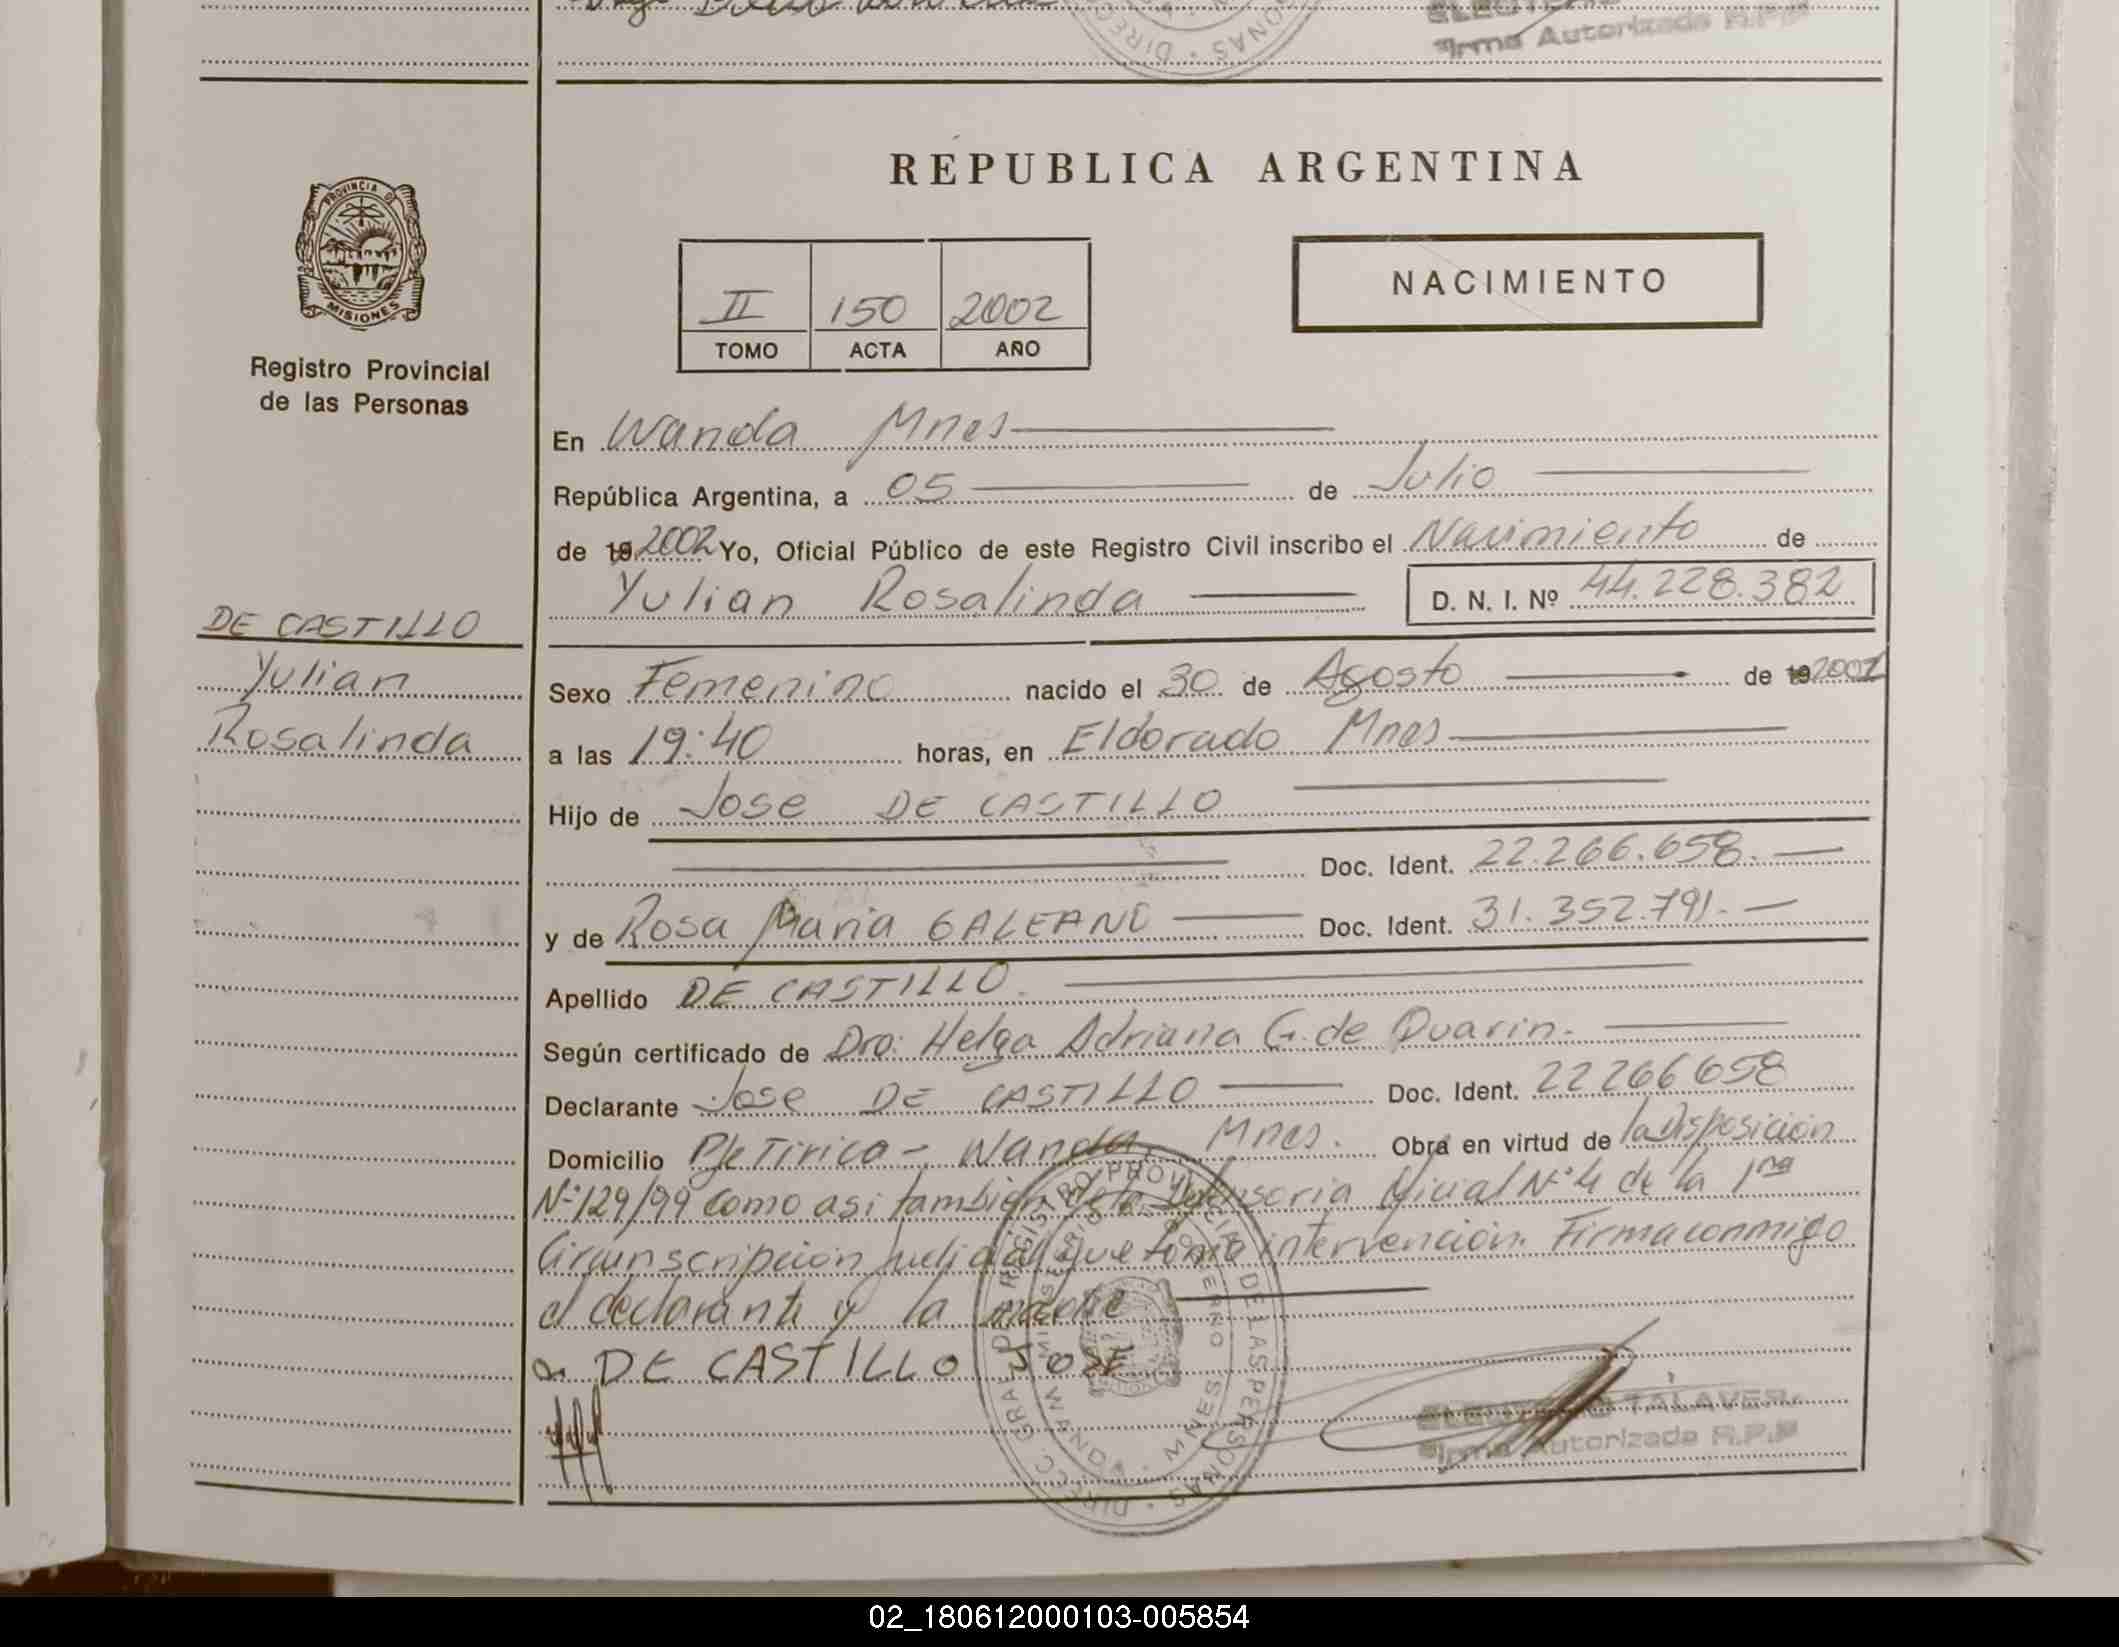 Firma Autorizada R.P.P
REPUBLICA ARGENTINA
PROVINCIA DE
MISIONES
Registro Provincial
de las Personas
II 150 2002
TOMO ACTA AÑO
NACIMIENTO
En Wanda Mnes
República Argentina, a 05 de Julio
de 19 2002 Yo, Oficial Público de este Registro Civil inscribo el Nacimiento de
Yulian Rosalinda D. N. I. Nº 44.228.382
DE CASTILLO
Yulian
Rosalinda
Sexo Femenino nacido el 30 de Agosto de 19 2001
a las 19:40 horas, en Eldorado Mnes
Hijo de Jose DE CASTILLO
Doc. Ident. 22.266.658.
y de Rosa Maria GALEANO Doc. Ident. 31.352.791.
Apellido DE CASTILLO.
Según certificado de Dra: Helga Adriana G. de Quarin.
Declarante Jose DE CASTILLO Doc. Ident. 22266658
Domicilio Pje Tirica - Wanda, Mnes. Obra en virtud de la Disposición
Nº 129/99 como asi tambien de la Defensoria Oficial Nº 4 de la 1ra
Circunscripción judicial que toma intervención. Firma conmigo
el declarante y la madre
DE CASTILLO JOSE
DIRECC. GRAL. DE REGISTRO PROVINCIAL DE LAS PERSONAS
MINISTERIO DE GOBIERNO
WANDA · MNES
ELEUTERIO TALAVERA
Firma Autorizada R.P.P
02_180612000103-005854